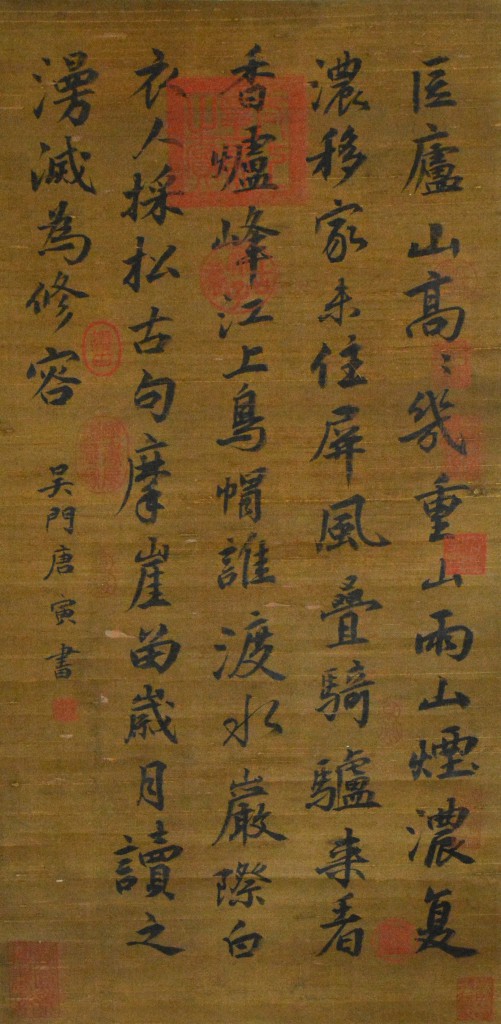 匡廬山高〻幾重山雨山煙濃复
濃移家未住屏風疊騎驢来看
香爐峰江上烏帽誰渡水巖際白
衣人採松古句摩崖畱歲月讀之
漫滅為修容
吳門唐寅書